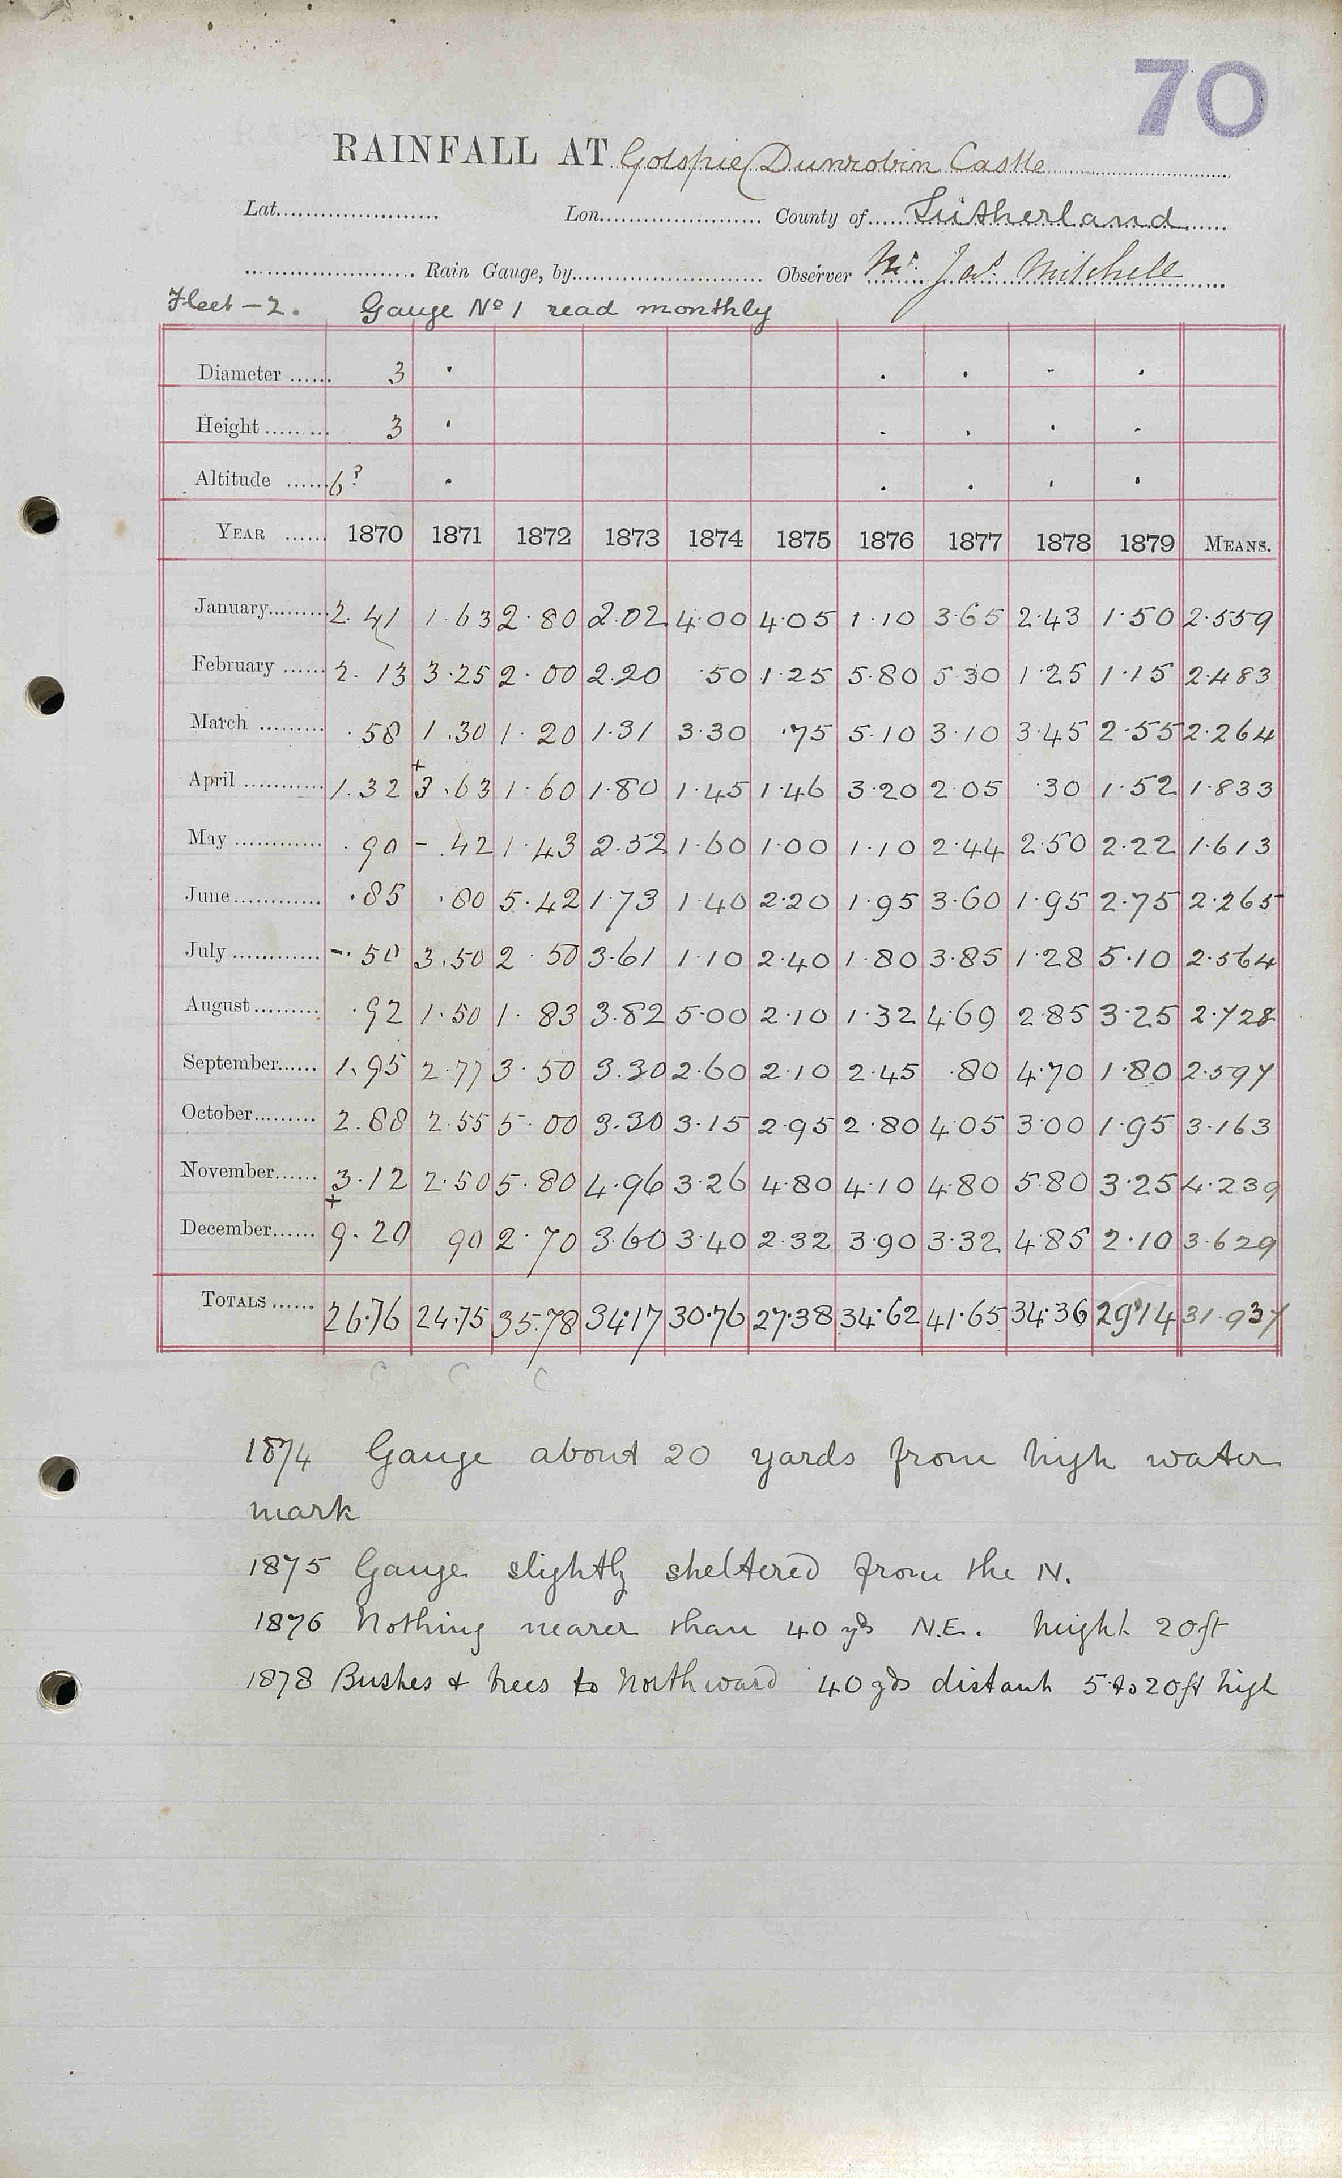 70
RAINFALL AT Golspie (Dunrobin Castle
Lat. Lon. County of Sutherland
Rain Gauge, by Observer Mr. Jas. Mitchell
Fleet - 2. Gauge No 1 read monthly
Diameter 3 · · · · ·
Height 3 · · · · ·
Altitude 6? · · · · ·
YEAR 1870 1871 1872 1873 1874 1875 1876 1877 1878 1879 MEANS.
January 2.41 1.63 2.80 2.02 4.00 4.05 1.10 3.65 2.43 1.50 2.559
February 2.13 3.25 2.00 2.20 .50 1.25 5.80 5.30 1.25 1.15 2.483
March .58 1.30 1.20 1.31 3.30 .75 5.10 3.10 3.45 2.55 2.264
April 1.32 +3.63 1.60 1.80 1.45 1.46 3.20 2.05 .30 1.52 1.833
May .90 - .42 1.43 2.52 1.60 1.00 1.10 2.44 2.50 2.22 1.613
June .85 .80 5.42 1.73 1.40 2.20 1.95 3.60 1.95 2.75 2.265
July -.50 3.50 2.50 3.61 1.10 2.40 1.80 3.85 1.28 5.10 2.564
August .92 1.50 1.83 3.82 5.00 2.10 1.32 4.69 2.85 3.25 2.728
September 1.95 2.77 3.50 3.30 2.60 2.10 2.45 .80 4.70 1.80 2.597
October 2.88 2.55 5.00 3.30 3.15 2.95 2.80 4.05 3.00 1.95 3.163
November 3.12 2.50 5.80 4.96 3.26 4.80 4.10 4.80 5.80 3.25 4.239
December +9.20 90 2.70 3.60 3.40 2.32 3.90 3.32 4.85 2.10 3.629
TOTALS 26.76 24.75 35.78 34.17 30.76 27.38 34.62 41.65 34.36 29.14 31.937
C C C
1874 Gauge about 20 yards from high water
mark
1875 Gauge slightly sheltered from the N.
1876 Nothing nearer than 40 yds N.E. height 20ft
1878 Bushes & trees to Northward 40 yds distant 5 to 20ft high